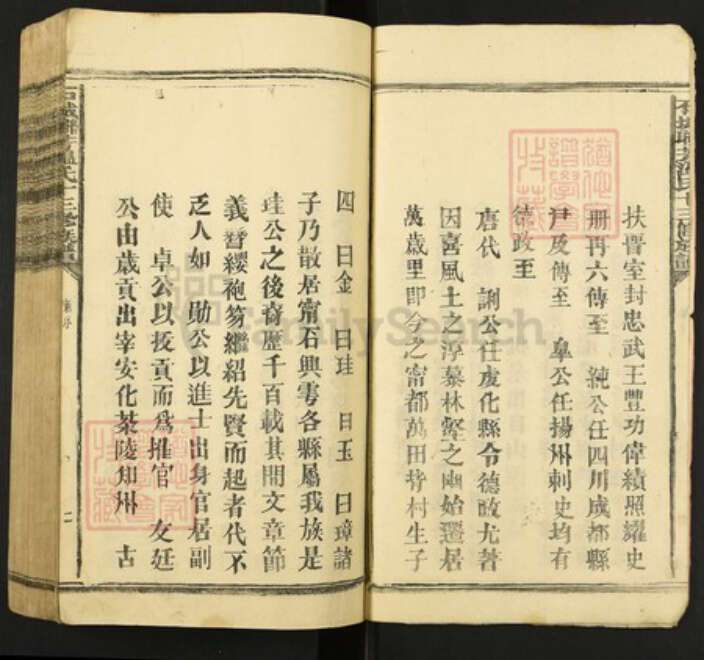 扶晉室封忠武王豐功偉績照耀史
册再六傳至　純公任四川成都縣
尹及傳至　皐公任揚州刺史均有
德政至
唐代　訓公任虔化縣令德政尤著
因喜風土之淳慕林壑之幽始遷居
萬歲里即今之甯都萬田塅村生子
四　曰金　曰珪　曰玉　曰璋諸
子乃散居甯石興雩各縣屬我族是
珪公之後裔歷千百載其間文章節
義簪纓袍笏繼紹先賢而起者代不
乏人如　勛公以進士出身官居副
使　卓公以拔貢而爲推官　友廷
公由歲貢出宰安化茶陵知州　古
二
FamilySearch